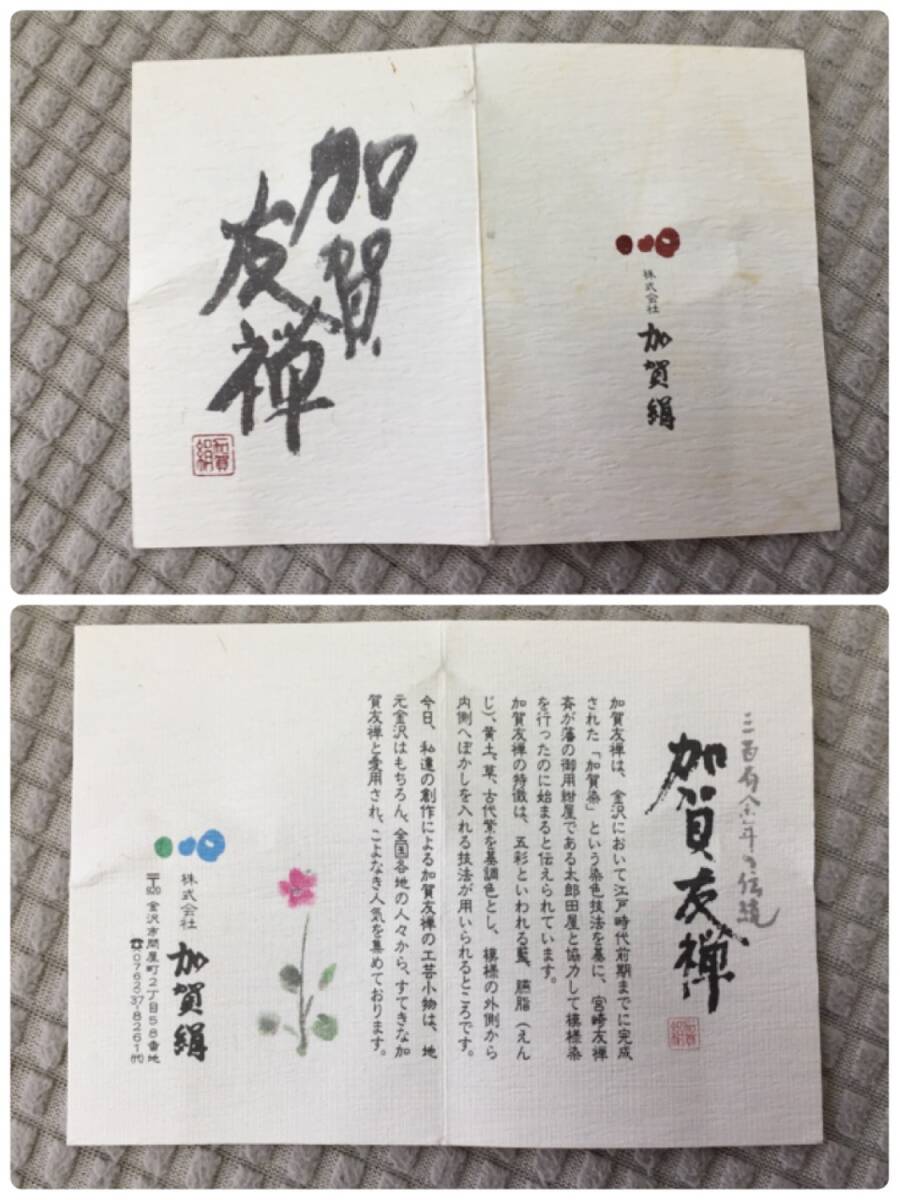 加賀
友禅
加賀
絹
株式会社
加賀絹
三百有余年の伝統
加賀友禅
加賀
絹
加賀友禅は、金沢において江戸時代前期までに完成
された「加賀染」という染色技法を基に、宮崎友禅
斉が藩の御用紺屋である太郎田屋と協力して模様染
を行ったのに始まると伝えられています。
加賀友禅の特徴は、五彩といわれる藍、臙脂(えん
じ)、黄土、草、古代紫を基調色とし、模様の外側から
内側へぼかしを入れる技法が用いられるところです。
今日、私達の創作による加賀友禅の工芸小物は、地
元金沢はもちろん、全国各地の人々から、すてきな加
賀友禅と愛用され、こよなき人気を集めております。
株式会社
加賀絹
〒920 金沢市問屋町2丁目58番地
☎0762・37・8261㈹